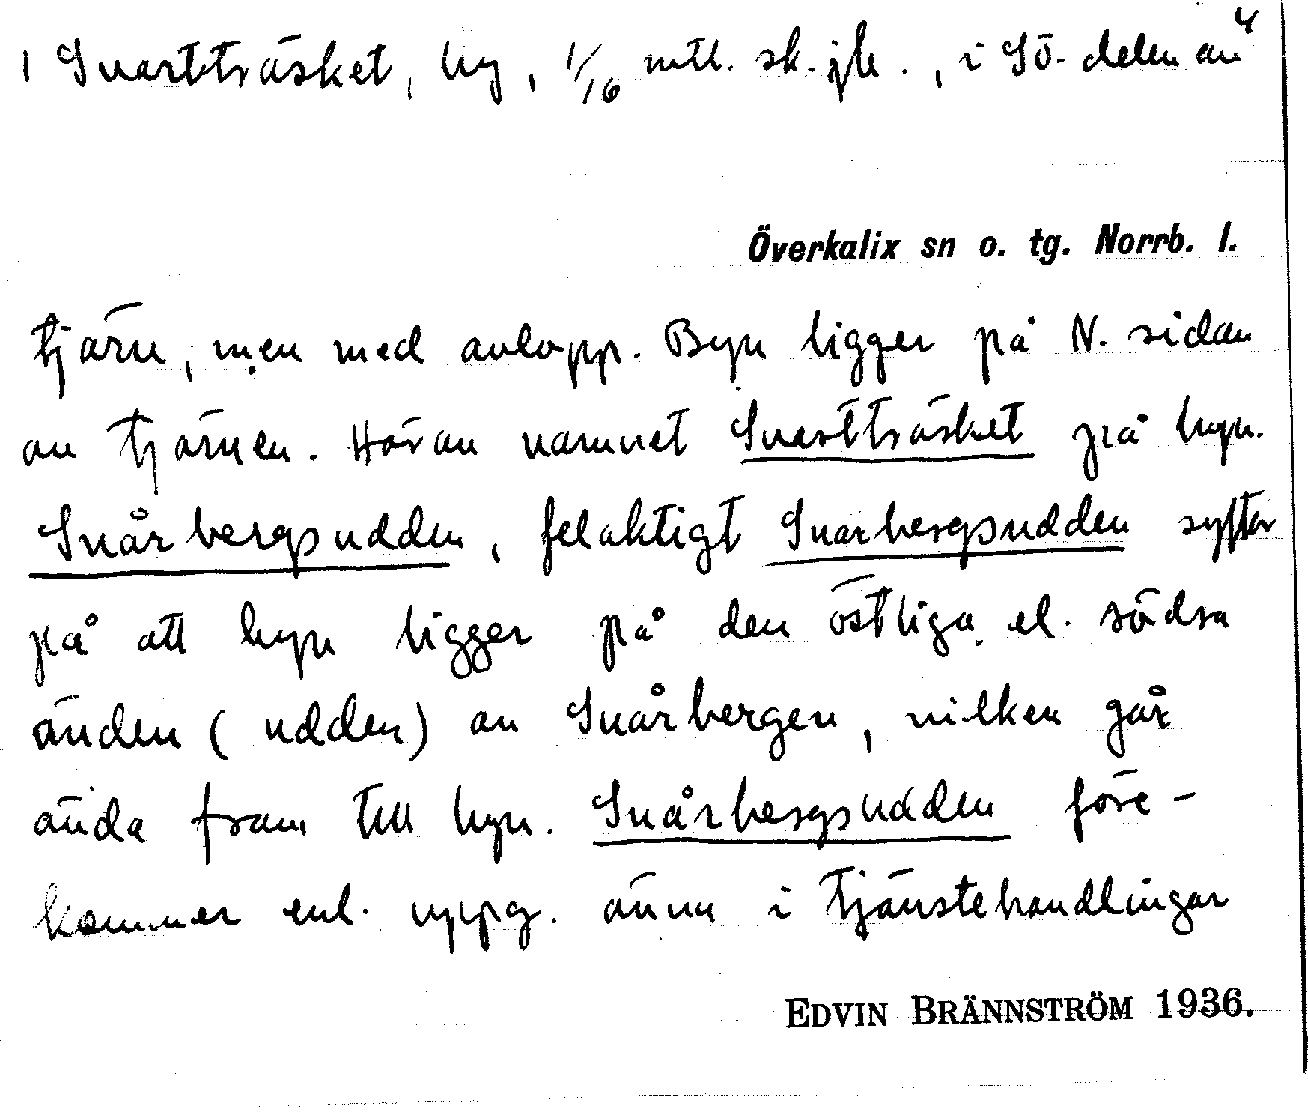 1 Svartträsket, by, 1/16 mtl. sk. jb., i Sö. delen av
4
Överkalix sn o. tg. Norrb. l.
tjärn, men med avlopp. Byn ligger på N. sidan
av tjärnen. Härav namnet Svartträsket på byn.
Snårbergsudden, felaktigt Snarbergsudden syftar
på att byn ligger på den östliga el. södra
änden (udden) av Snårbergen, vilken går
ända fram till byn. Snårbergsudden före-
kommer enl. uppg. ännu i tjänstehandlingar
EDVIN BRÄNNSTRÖM 1936.